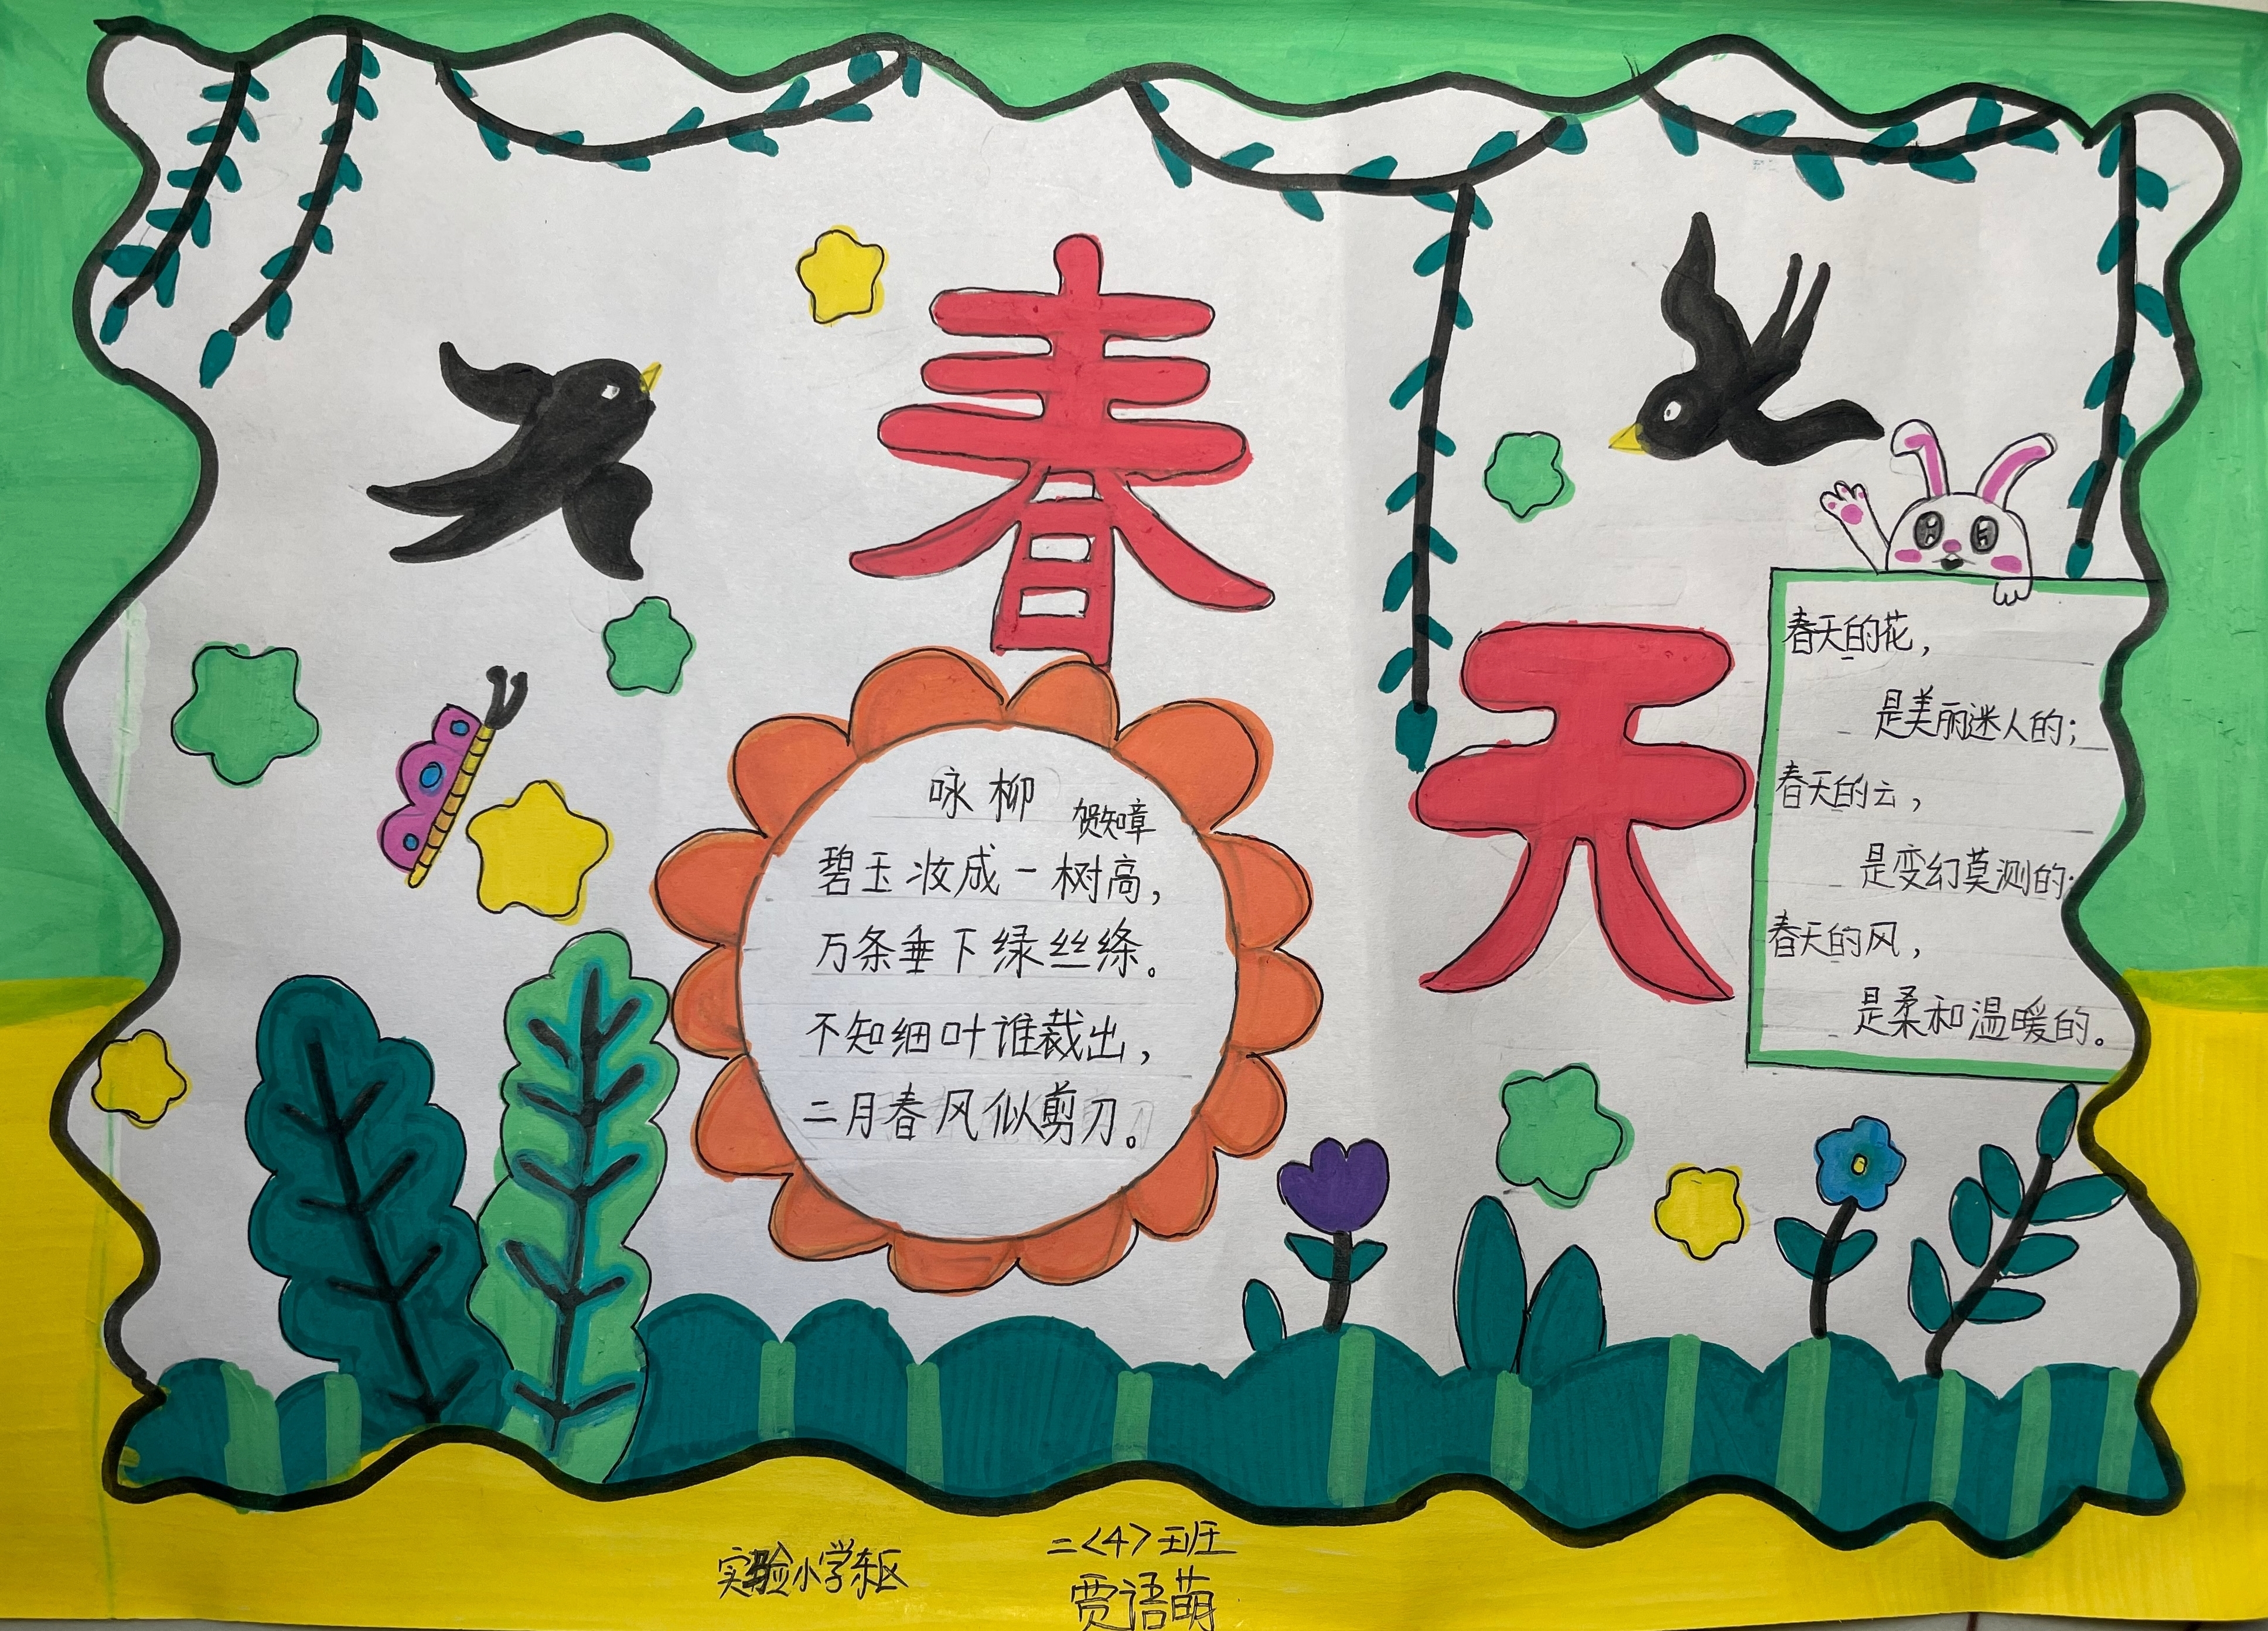 春
天
咏柳
贺知章
碧玉妆成一树高，
万条垂下绿丝绦。
不知细叶谁裁出，
二月春风似剪刀。
春天的花，
是美丽迷人的；
春天的云，
是变幻莫测的；
春天的风，
是柔和温暖的。
实验小学东区
二<4>班
贾语萌